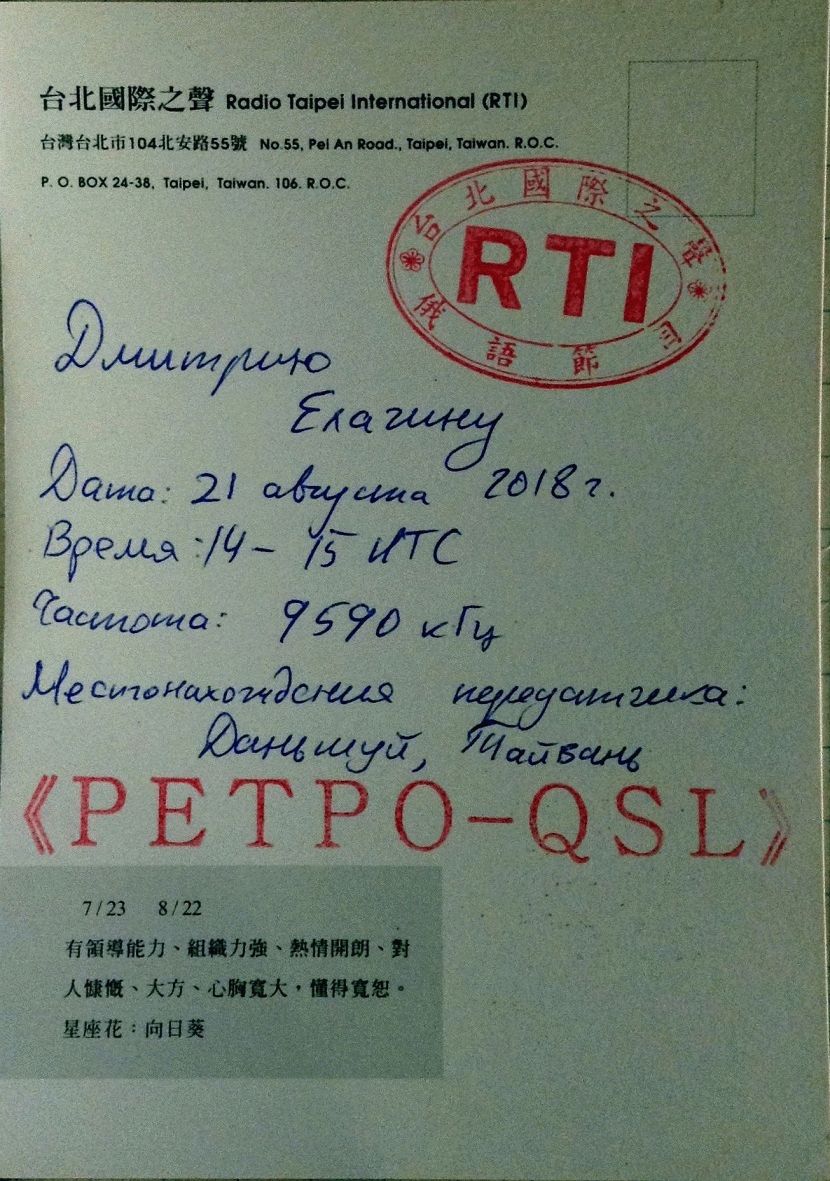 台北國際之聲 Radio Taipei International (RTI)
台灣台北市104北安路55號 No.55, Pei An Road., Taipei, Taiwan. R.O.C.
P. O. BOX 24-38, Taipei, Taiwan. 106. R.O.C.
台北國際之聲
RTI
俄語節目
Дмитрию
Елагину
Дата: 21 августа 2018 г.
Время: 14 - 15 UTC
Частота: 9590 кГц
Местонахождения передатчика:
Даньшуй, Тайвань
《РЕТРО-QSL》
7/23 8/22
有領導能力、組織力強、熱情開朗、對
人慷慨、大方、心胸寬大，懂得寬恕。
星座花：向日葵